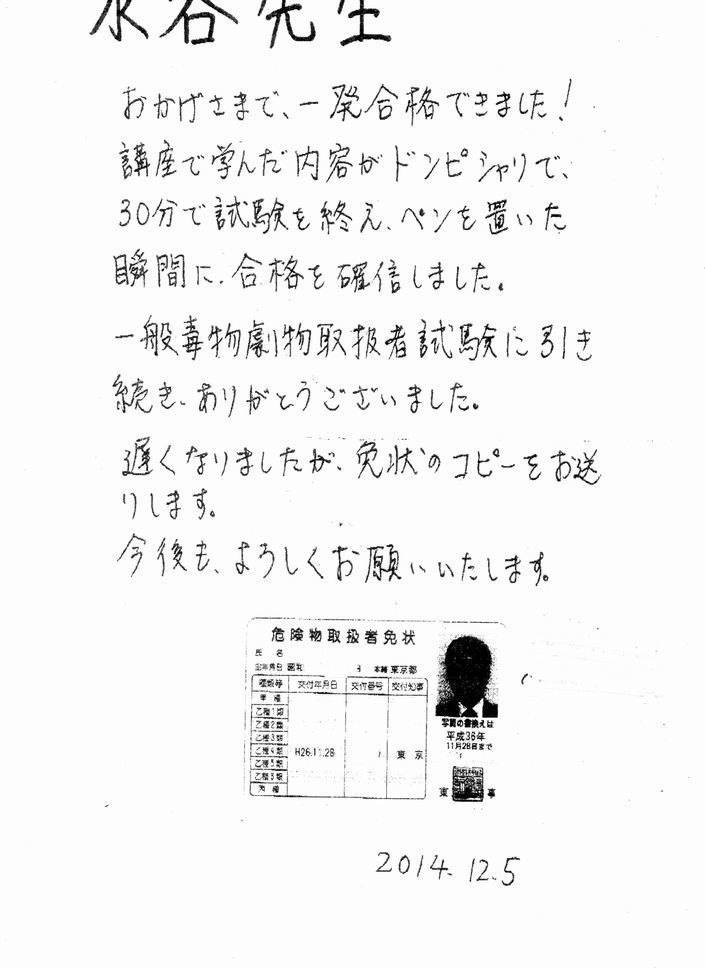 水谷先生
おかげさまで、一発合格できました!
講座で学んだ内容がドンピシャリで、
30分で試験を終え、ペンを置いた
瞬間に、合格を確信しました。
一般毒物劇物取扱者試験に引き
続き、ありがとうございました。
遅くなりましたが、免状のコピーをお送
りします。
今後も、よろしくお願いいたします。
危険物取扱者免状
氏 名
生年月日 昭和 本籍 東京都
種類等 交付年月日 交付番号 交付知事
甲 種
乙種1類
乙種2類
乙種3類
乙種4類 H26.11.28 東 京
乙種5類
乙種6類
丙 種
写真の書換えは
平成36年
11月28日まで
東 事
2014.12.5